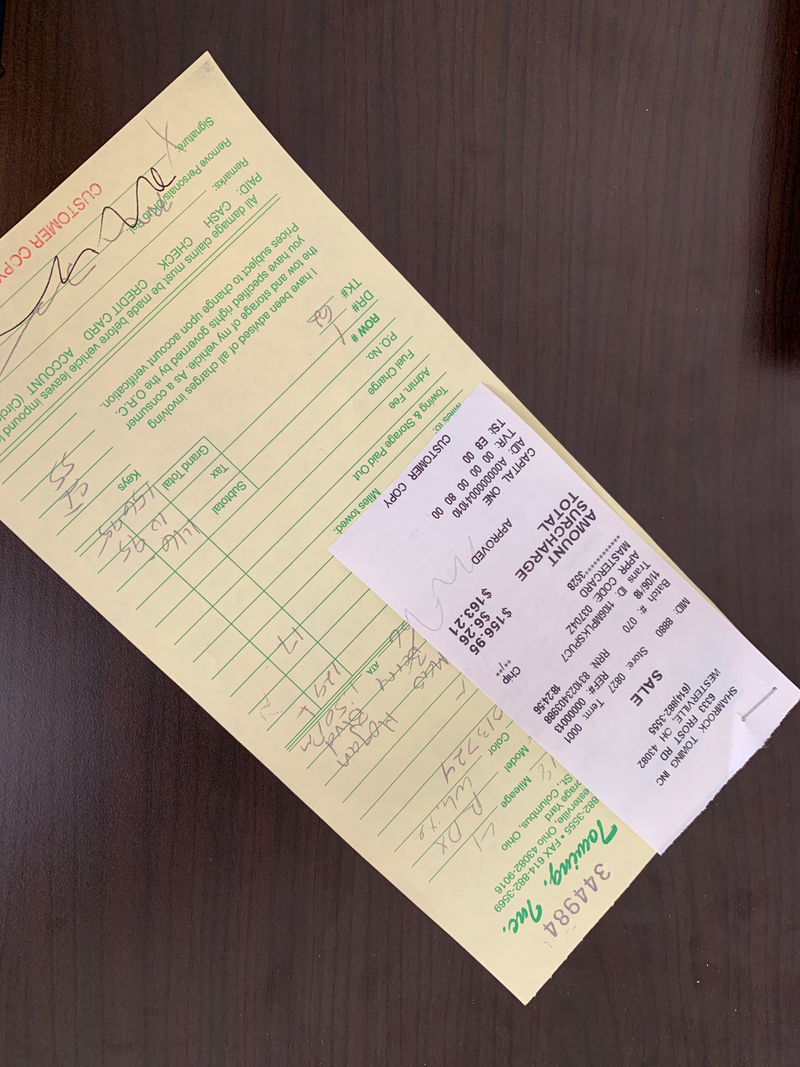 SHAMROCK TOWING INC
6333 FROST RD
WESTERVILLE, OH 43082
(614)882-3555
SALE
MID: 8880
Store: 0827 Term: 0001
REF#: 00000013
Batch #: 070
RRN: 831023403988
11/06/18 18:24:56
Trans ID: 1106MPLKSPUC7
APPR CODE: 03704Z
MASTERCARD Chip
************3528 **/**
AMOUNT $156.95
SURCHARGE $6.26
TOTAL $163.21
APPROVED
CAPITAL ONE
AID: A0000000041010
TVR: 00 00 00 80 00
TSI: E8 00
CUSTOMER COPY
344984
Towing, Inc.
882-3555 • FAX 614-882-3569
esterville, Ohio 43082-9016
orage Yard
St., Columbus, Ohio
Mileage
Model
Color
White
ATA
Miles towed:
Towing & Storage Paid Out
Admin. Fee
Fuel Charge
P.O. No.
ROW #
DR#
TK#
17
Subtotal 146
Tax 10.95
Grand Total 156.95
Keys
I have been advised of all charges involving
the tow and storage of my vehicle. As a consumer
you have specified rights governed by the O.R.C.
Prices subject to change upon account verification.
All damage claims must be made before vehicle leaves impound
PAID: CASH CHECK CREDIT CARD ACCOUNT (Circle
Remarks:
Remove Personals/OK to Rel.
Signature:
X
CUSTOMER COPY